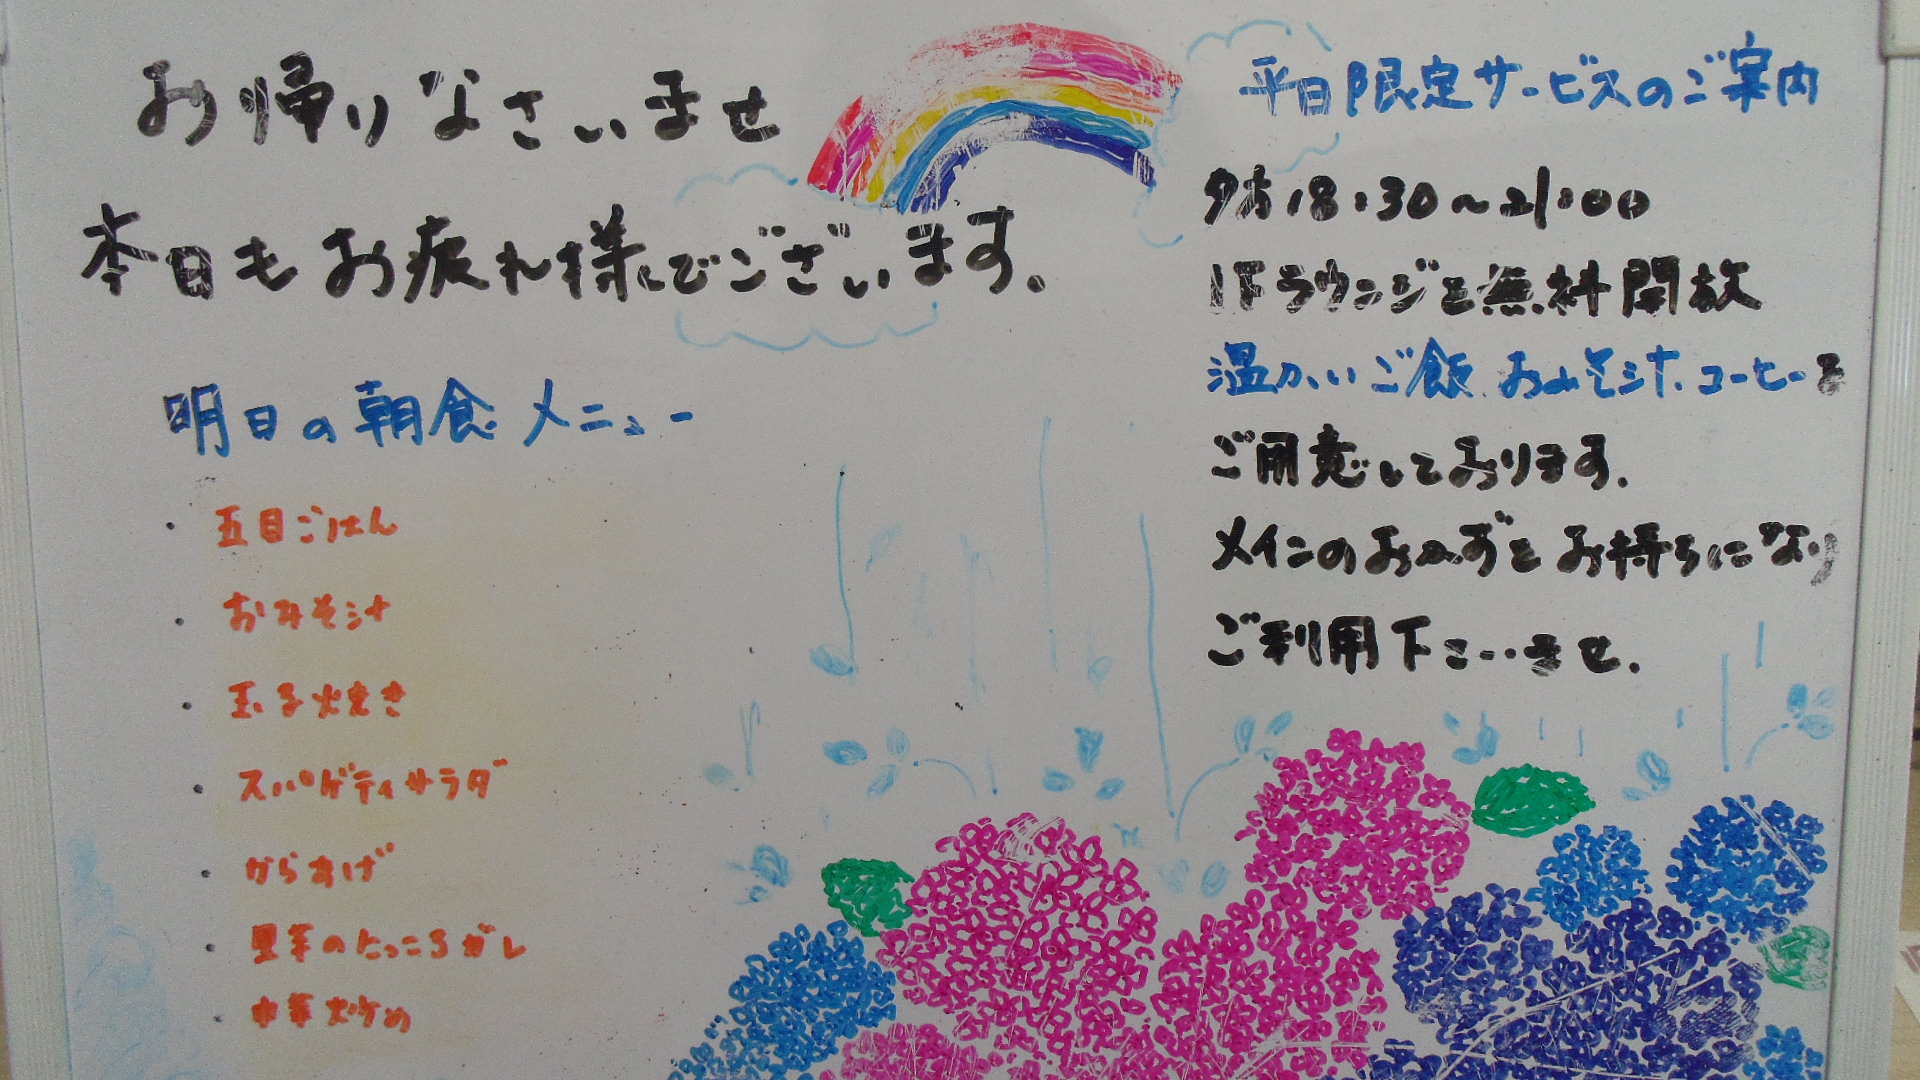 お帰りなさいませ
本日もお疲れ様でございます。
明日の朝食メニュー
・五目ごはん
・おみそ汁
・玉子焼き
・スパゲティサラダ
・からあげ
・里芋のたっころがし
・中華炒め
平日限定サービスのご案内
夕方18:30〜21:00
1Fラウンジを無料開放
温かいご飯、おみそ汁、コーヒーを
ご用意しております。
メインのおかずをお持ちになり
ご利用下さいませ。